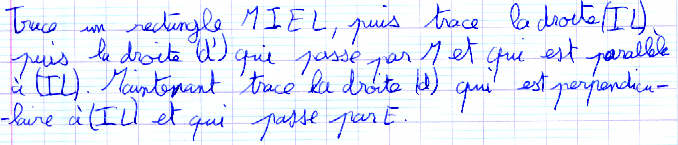 Trace un rectangle MIEL, puis trace la droite (IL)
puis la droite (d') qui passe par M et qui est parallèle
à (IL). Maintenant trace la droite (d) qui est perpendicu-
-laire à (IL) et qui passe par E.